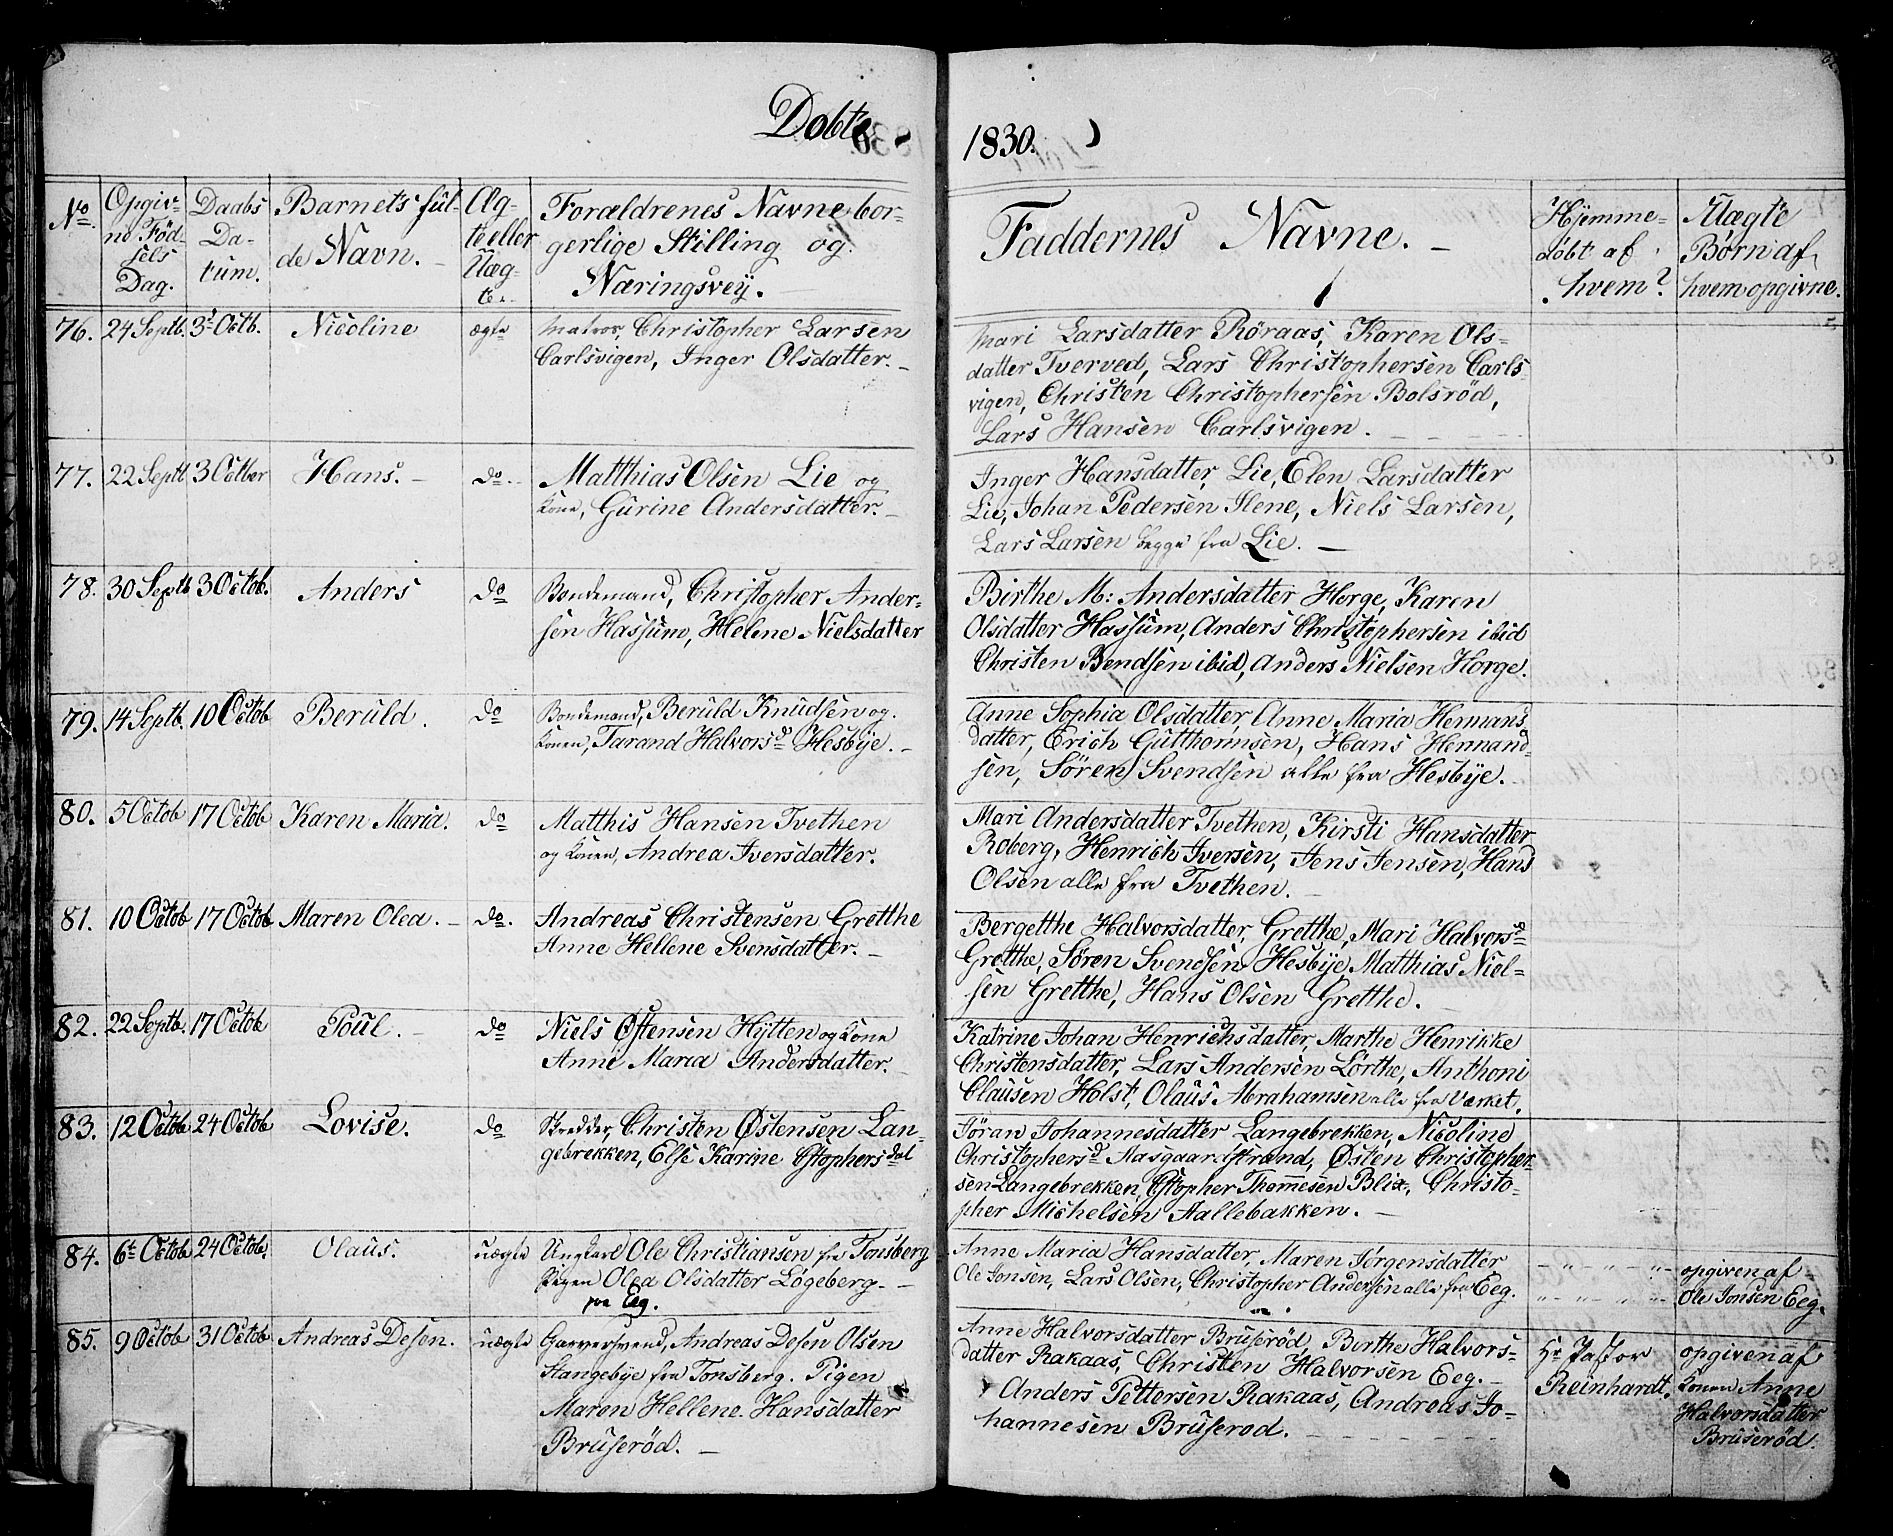 Døbte
1830.
No.
Opgiv-
ne Fød-
sels
Dag.
Daabs
Da-
tum.
Barnets ful-
de Navn.
Æg-
te eller
Uæg-
te.
Forældrenes Navne bor-
gerlige Stilling og
Næringsvey.
Faddernes Navne.
Hjemme-
døbt af
hvem?
Uægte
Børn af
hvem opgivne.
76. 24 Septb. 3 Octb. Nicoline ægte Matros, Christopher Larsen
Carlsvigen, Inger Olsdatter.
Mari Larsdatter Röraas, Karen Ols-
datter Tverved, Lars Christophersen Carls-
vigen, Christen Christophersen Bolsröd,
Lars Hansen Carlsvigen.
77. 22 Septb 3 Octber Hans. do. Matthias Olsen Lie og
Kone, Gurine Andersdatter.
Inger Hansdatter, Lie, Elen Larsdatter
Lie, Johan Pedersen Ilene, Niels Larsen,
Lars Larsen begge fra Lie.
78. 30 Septb 3 Octob. Anders do Bondemand, Christopher Ander-
sen Hassum, Helene Nielsdatter
Birthe M: Andersdatter Horge, Karen
Olsdatter Hassum, Anders Christophersen ibid
Christen Bendsen ibid, Anders Nielsen Horge.
79. 14 Septb. 10 Octob Beruld. do Bondemand, Beruld Knudsen og
Konen, Tarand Halvorsd Hesbye.
Anne Sophia Olsdatter, Anne Maria Hermans
datter, Erich Gutthormsen, Hans Hermand-
sen, Søren Svendsen alle fra Hesbye.
80. 5 Octob 17 Octob Karen Maria. do Matthis Hansen Tvethen
og Konen, Andrea Iversdatter.
Mari Andersdatter Tvethen, Kirsti Hansdatter
Roberg, Henrich Iversen, Jens Jensen, Hans
Olsen alle fra Tvethen.
81. 10 Octob 17 Octob Maren Olea. do. Andreas Christensen Gretthe
Anne Hellene Svensdatter.
Bergetthe Halvorsdatter, Gretthe, Mari Halvorsd
Gretthe, Søren Svendsen Hesbye, Matthias Niel-
sen Gretthe, Hans Olsen Gretthe.
82. 22 Septb. 17 Octob Poul. do Niels Østensen Hytten og Kone
Anne Maria Andersdatter.
Katrine Johan Henrichsdatter, Marthe Henrikke
Christensdatter, Lars Andersen Lörthe, Anthoni
Clausen Holst, Olaus Abrahamsen alle fra Værket.
83. 12 Octob 24 Octob Lovise. do Skredder, Christen Østensen Lan-
gebrekken, Else Karine Cstophersdat
Jøran Johannesdatter Langebrekken, Nicoline
Christophersd Aasgaardstrand, Østen Christopher-
sen Langebrekken, Cstopher Thommesen Blix, Christo-
pher Michelsen Aallebakken.
84. 6te Octob 24 Octob. Olaus. uægte Ungkarl Ole Christiansen fra Tonsberg
Pigen Olea Olsdatter Løgeberg.
paa Eeg.
Anne Maria Hansdatter, Maren Jörgensdatter
Ole Jonsen, Lars Olsen, Christopher Andersen alle fra Eeg.
opgiven af
Ole Jonsen Eeg.
85. 9 Octob 31 Octob Andreas Desen. uægte Garversvend, Andreas Desen Olsen
Stangebye fra Tonsberg. Pigen
Maren Hellene Hansdatter
Bruseröd.
Anne Halvorsdatter Bruseröd, Berthe Halvors-
datter Rakaas, Christen Halvorsen Eeg.
Anders Pettersen Rakaas, Andreas Jo-
hannesen Bruserod.
Hr Pastor
Reinhardt.
opgiven af
Konen Anne
Halvorsdatter
Bruseröd.